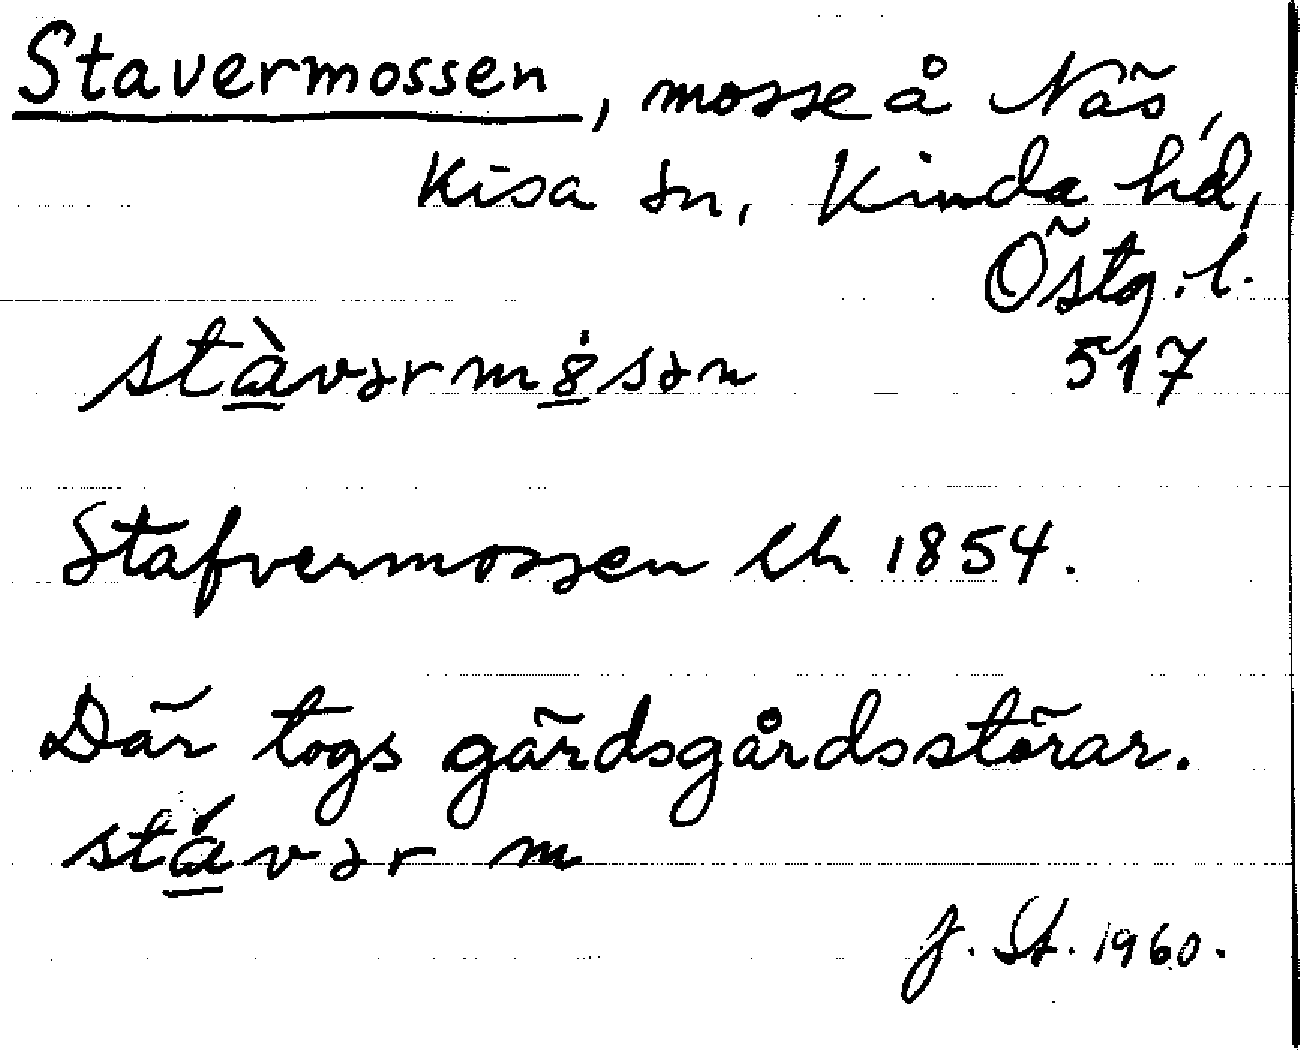 Stavermossen, mosse å Näs,
Kisa sn, Kinda hd,
Östg. l.
stàvərmọ̇sən 517
Stafvermossen lh 1854.
Där togs gärdsgårdsstörar.
stávər m
J. St. 1960.